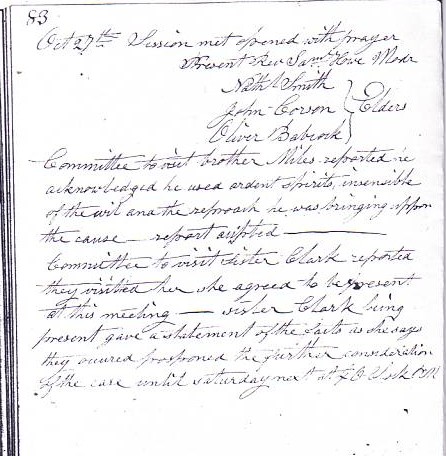 83
Oct 27th Session met opened with prayer
Present Rev Saml Howe Modr
Nathl Smith
John Corson } Elders
Oliver Babcock
Committee to visit brother Miles reported he
acknowledged he used ardent spirits, insensible
of the evil and the reproach he was bringing uppon
the cause — report acepted —
Committee to visit Sister Clark reported
they visited her she agreed to be present
at this meeting — sister Clark being
present gave a statement of the facts as she says
they occured postponed the further consideration
of the case until saturday next at